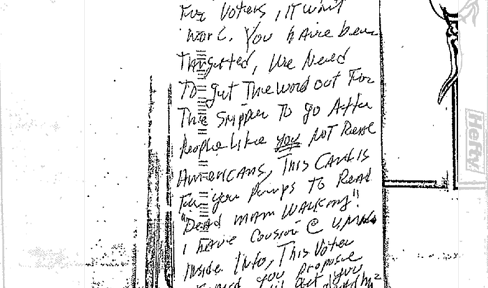 For Voters, it won't
work. You have been
Targeted, We Need
To get The word out For
The Snipper To go After
People Like you NOT Real
Americans, This Card is
For you Pumps To Read
"Dead MAN WALKING"!
I have Cousion @
Inside Info, This Voter
you propose
you
Hefty